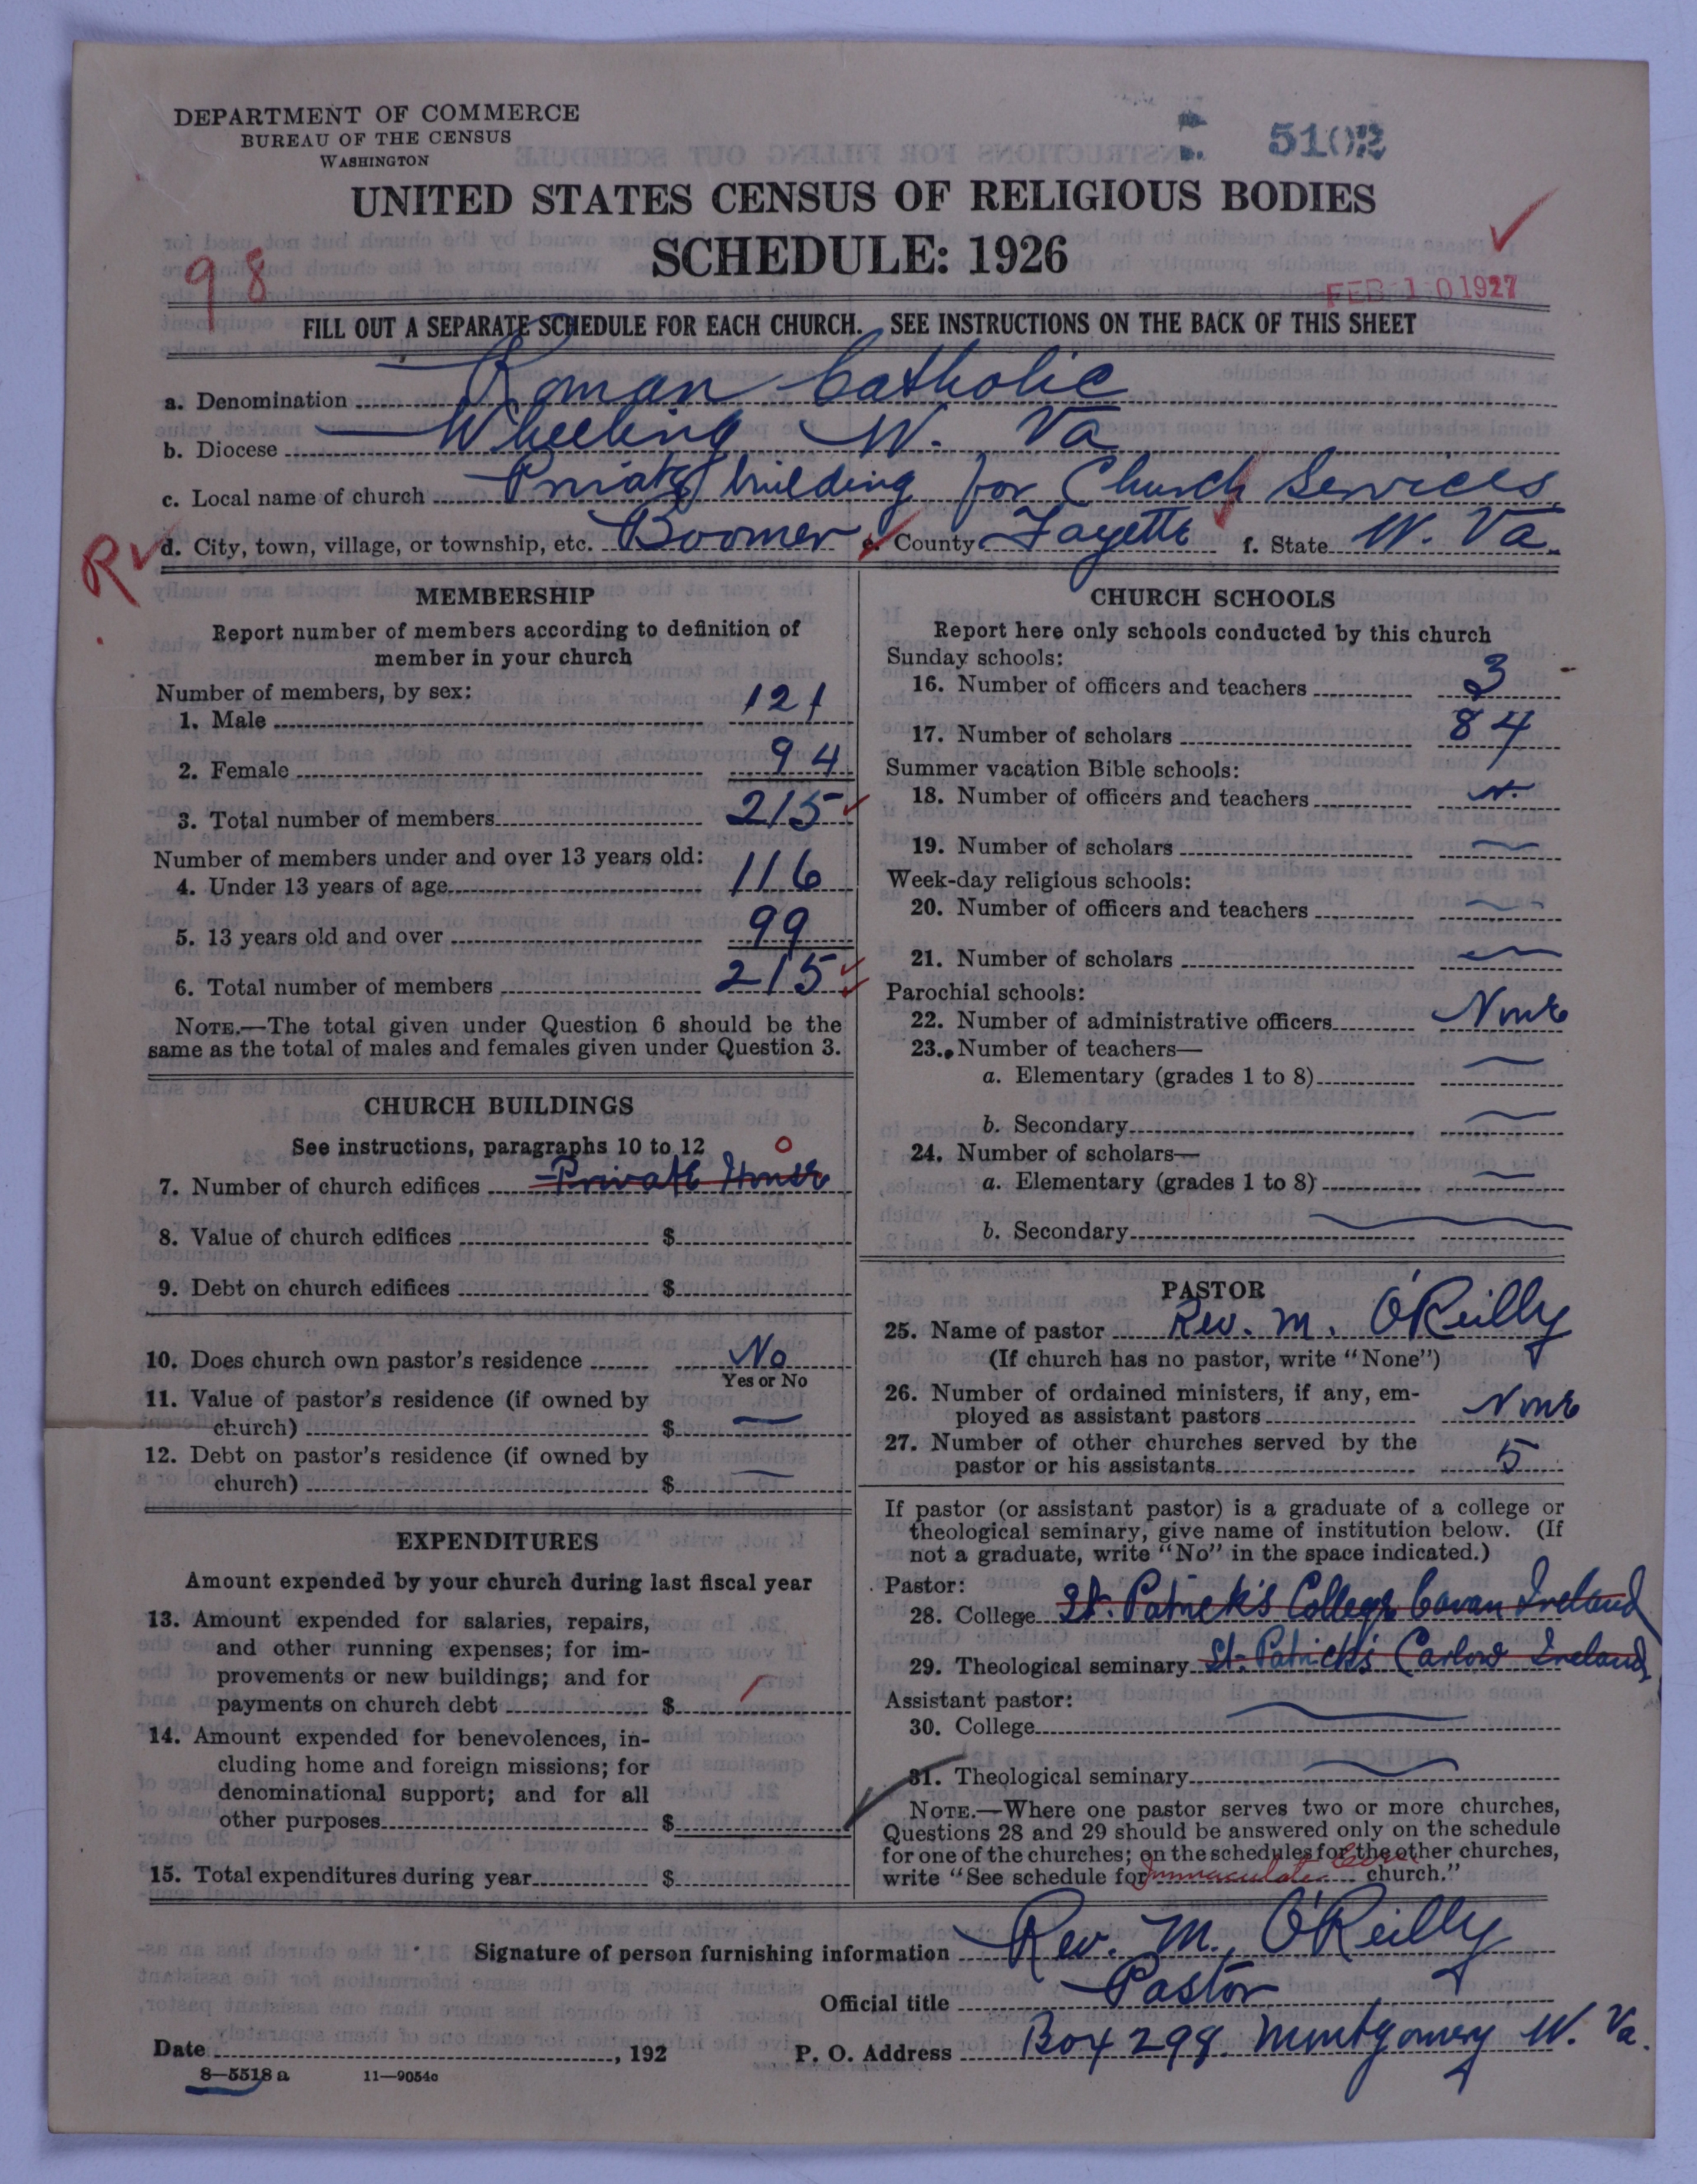 DEPARTMENT OF COMMERCE
BUREAU OF THE CENSUS
WASHINGTON
5102
UNITED STATES CENSUS OF RELIGIOUS BODIES
SCHEDULE: 1926
98
FEB 10 1927
FILL OUT A SEPARATE SCHEDULE FOR EACH CHURCH. SEE INSTRUCTIONS ON THE BACK OF THIS SHEET
a. Denomination Roman Catholic
b. Diocese Wheeling W. Va
c. Local name of church Private building for Church Services
R d. City, town, village, or township, etc. Boomer e. County Fayette f. State W. Va.
MEMBERSHIP
Report number of members according to definition of
member in your church
Number of members, by sex:
1. Male 121
2. Female 94
3. Total number of members 215
Number of members under and over 13 years old:
4. Under 13 years of age 116
5. 13 years old and over 99
6. Total number of members 215
NOTE.—The total given under Question 6 should be the
same as the total of males and females given under Question 3.
CHURCH BUILDINGS
See instructions, paragraphs 10 to 12 0
7. Number of church edifices Private House
8. Value of church edifices $
9. Debt on church edifices $
10. Does church own pastor's residence No
Yes or No
11. Value of pastor's residence (if owned by
church) $ —
12. Debt on pastor's residence (if owned by
church) $ —
EXPENDITURES
Amount expended by your church during last fiscal year
13. Amount expended for salaries, repairs,
and other running expenses; for im-
provements or new buildings; and for
payments on church debt $
14. Amount expended for benevolences, in-
cluding home and foreign missions; for
denominational support; and for all
other purposes $
15. Total expenditures during year $
CHURCH SCHOOLS
Report here only schools conducted by this church
Sunday schools:
16. Number of officers and teachers 3
17. Number of scholars 84
Summer vacation Bible schools:
18. Number of officers and teachers
19. Number of scholars —
Week-day religious schools:
20. Number of officers and teachers —
21. Number of scholars —
Parochial schools:
22. Number of administrative officers None
23. Number of teachers—
a. Elementary (grades 1 to 8) —
b. Secondary —
24. Number of scholars—
a. Elementary (grades 1 to 8) —
b. Secondary —
PASTOR
25. Name of pastor Rev. M. O'Reilly
(If church has no pastor, write "None")
26. Number of ordained ministers, if any, em-
ployed as assistant pastors None
27. Number of other churches served by the
pastor or his assistants 5
If pastor (or assistant pastor) is a graduate of a college or
theological seminary, give name of institution below. (If
not a graduate, write "No" in the space indicated.)
Pastor:
28. College St. Patrick's College Cavan Ireland
29. Theological seminary St. Patrick's Carlow Ireland
Assistant pastor:
30. College —
31. Theological seminary —
NOTE.—Where one pastor serves two or more churches,
Questions 28 and 29 should be answered only on the schedule
for one of the churches; on the schedules for the other churches,
write "See schedule for Immaculate church."
Signature of person furnishing information Rev. M. O'Reilly
Official title Pastor
Date , 192 P. O. Address Box 298 Montgomery W. Va.
8—5518 a 11—9054c